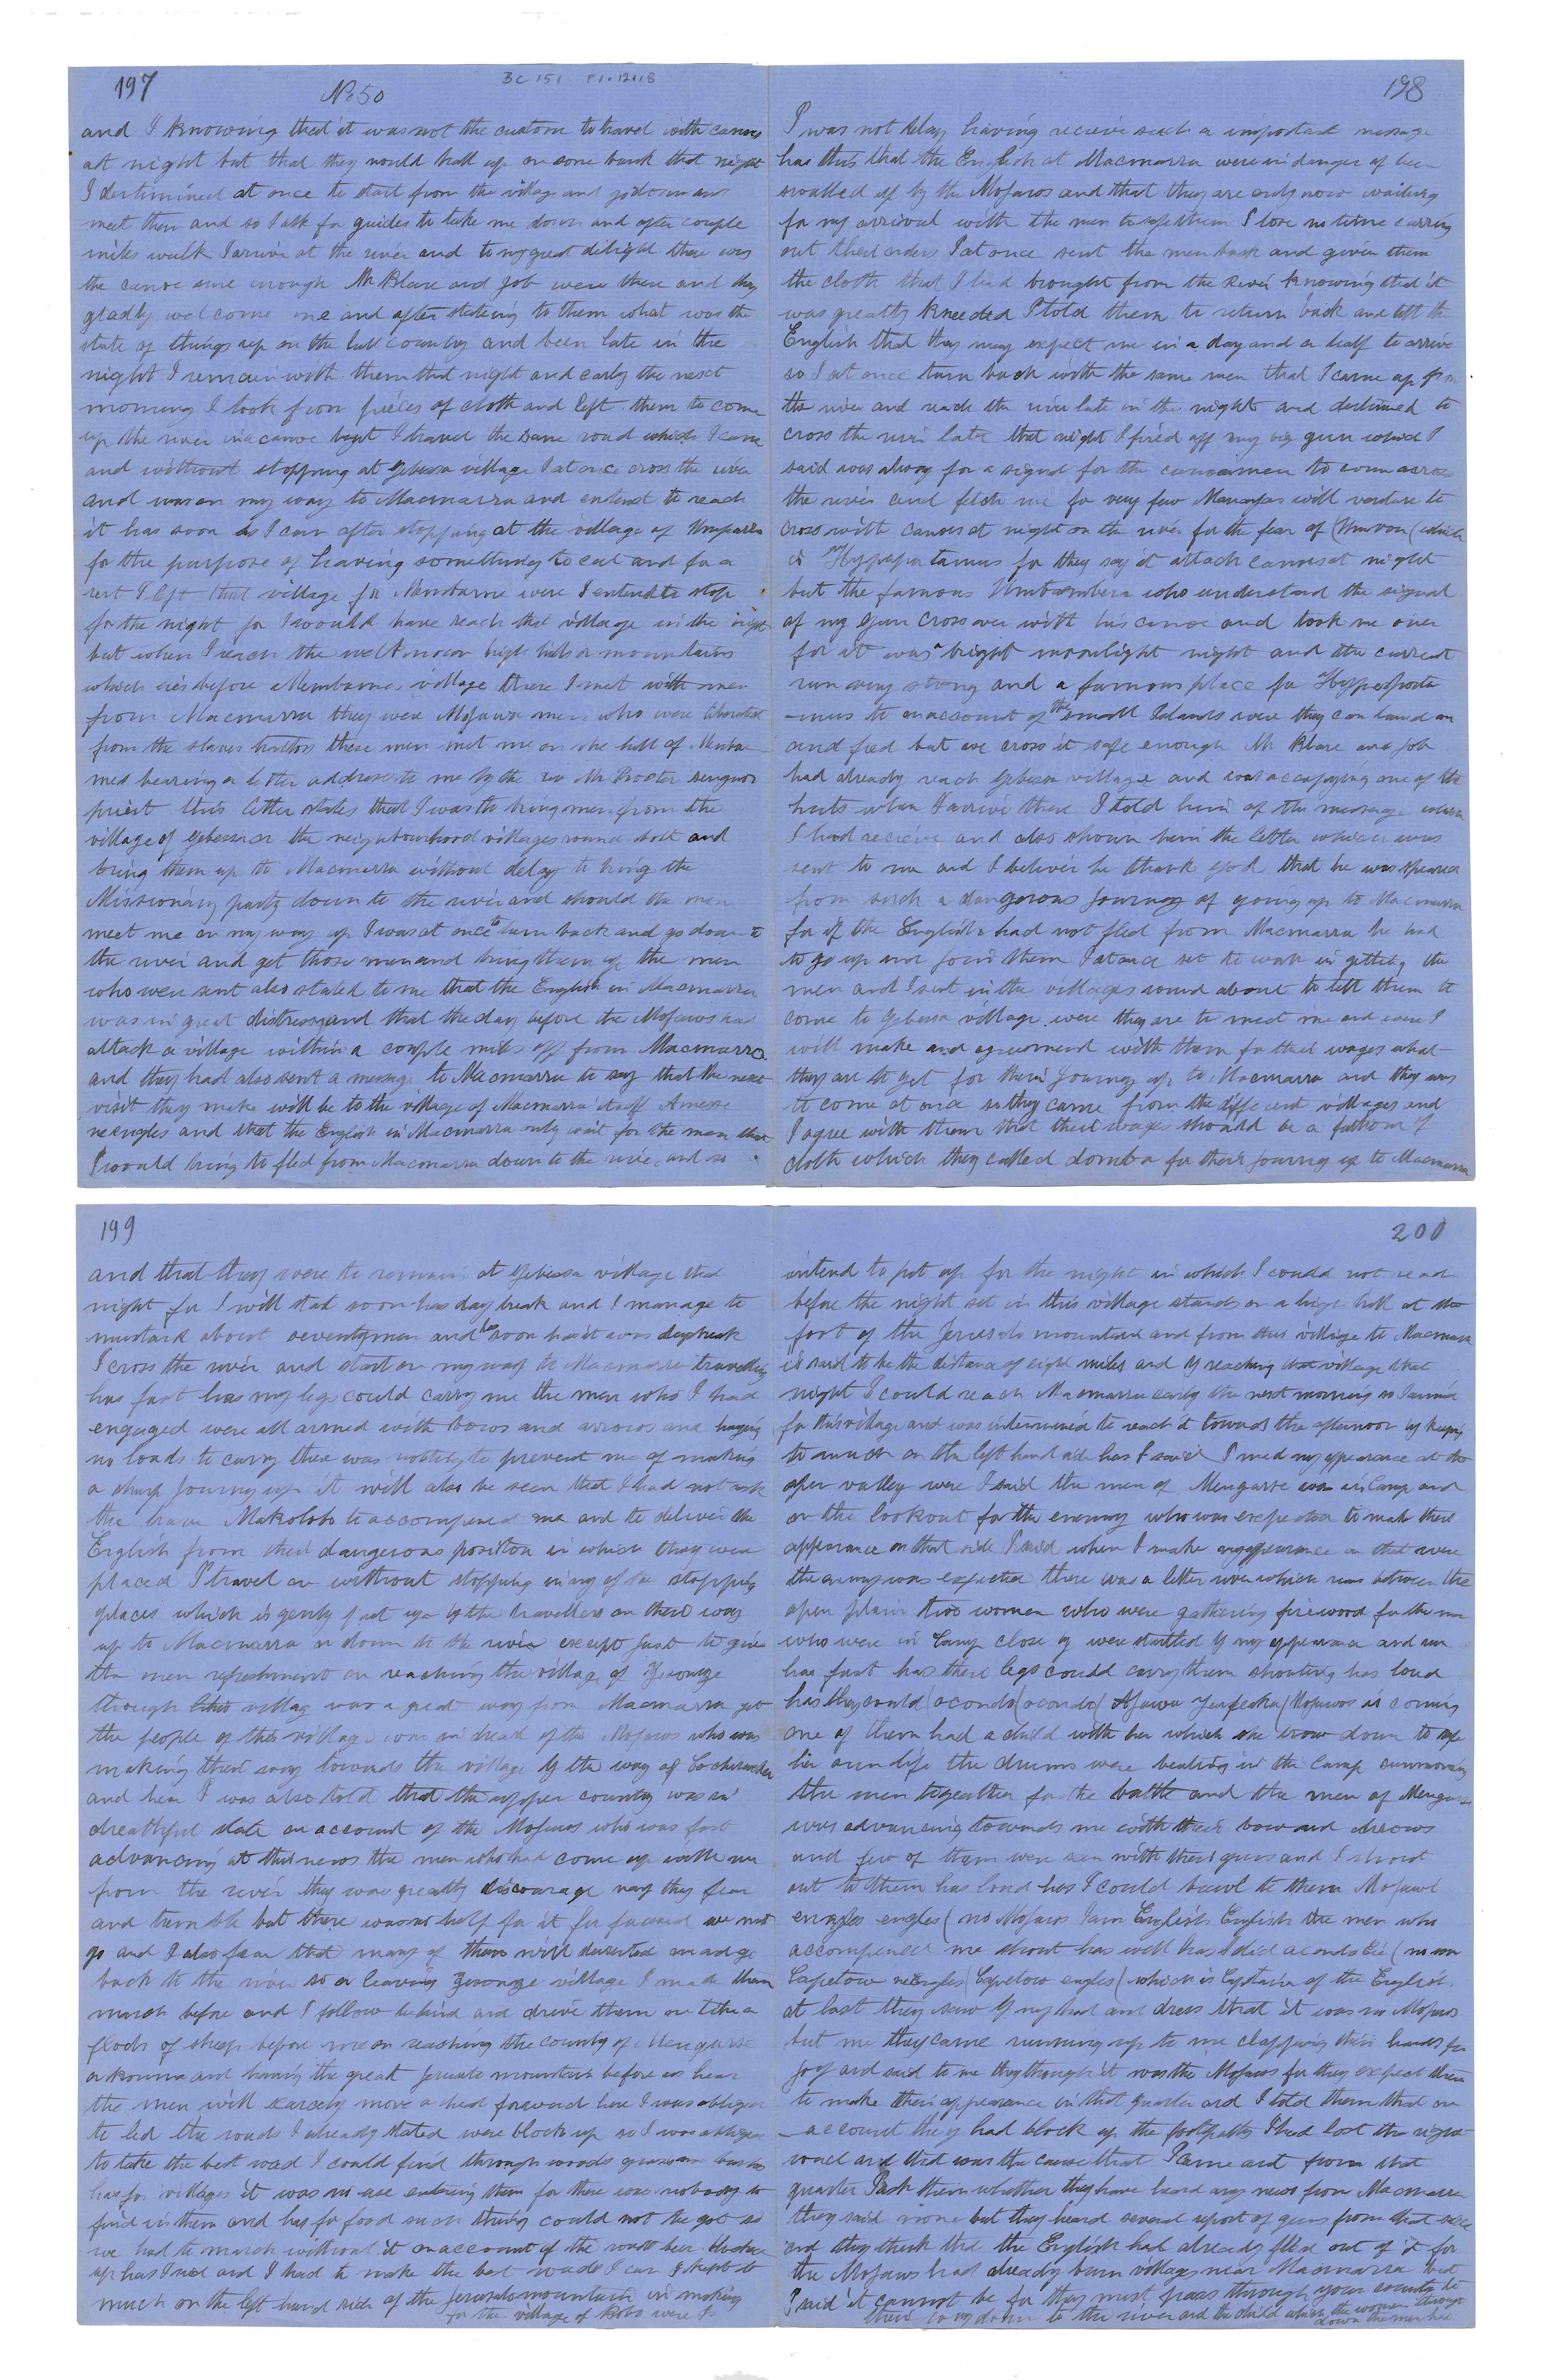 197
No 50
BC 151 F1.12+18
and I knowing that it was not the custom to travel with canoes
at night but that they would hall up on some bank that night
I dertimined at once to start from the village and go down and
meet them and so I ask for guides to take me down and after couple
miles walk I arrive at the river and to my great delight there was
the canoe sure enough Mr Blare and Job were there and they
gladly welcome me and after stateing to them what was the
state of things up on the hill country and been late in the
night I remain with them that night and early the next
morning I took from pieces of cloth and left them to come
up the river in a canoe I travel the same road which I came
and without stopping at Gebessa village I at once cross the river
and was on my way to Macmarra and entend to reach
it has soon as I can after stopping at the village of
for the purpose of having something to eat and for a
rest I left that village for Membarme were I entend to stop
for the night for I would have reach that village in the night
but when I reach the well known high hills or mountains
which lies before Membarmes village there I met with men
from Macmarra they were Mojawa men who were liberated
from the slaves these men met me on the hill of Memba
mes bearing a letter address to me by the rev Mr Procter
priest this letter states that I was to bring men from the
village of Gebessa or the neighbourhood villages round and
bring them up to Macmarra without delay to bring the
Missionary party down to the river and should the men
meet me on my way up I was at once to turn back and go down to
the river and get those men and bring them up the men
who were sent also stated to me that the English in Macmarra
was in great distress and that the day before the Mojawos had
attack a village within a couple miles off from Macmarra
and they had also sent a message to Macmarra to say that the next
visit they make will be to the village of Macmarra itself
and that the English in Macmarra only wait for the men that
I would bring to fled from Macmarra down to the river and so
198
I was not delay having recieve such a important message
has this that the English at Macmarra were in danger of been
swalled up by the Mojawos and that they are only now waiting
for my arrival with the men I lose no time carring
out their orders I at once sent the men back and given them
the cloth that I had brought from the River knowing that it
was greatly kneeded I told them to return back and tell the
English that they may expect me in a day and a half to arrive
so I at once turn back with the same men that I came up from
the river and reach the river late in the night and
cross the river late that night I fired off my big gun which I
said was always for a signal for the canoemen to come across
the river and fetch me for very few Manangas will venture to
cross with canoes at night on the river for the fear of (Umvoou (which
is Hyppopotamus for they say it attack canoes at night
but the famous Umbombera who understand the signal
of my gun cross over with his canoe and took me over
for it was bright moonlight night and the current
run very strong and a famous place for Hyppopota
-mus to on account of the small Islands were they can land on
and feed but we cross it safe enough Mr Blare and Job
had already reach Gebessa village and was accupying one of the
huts when I arrive there I told him of the message which
I had recieve and also shown him the letter which was
sent to me and I believe he thank God that he was spared
from such a dangerous Journey of going up to Macmarra
for if the English had not fled from Macmarra he had
to go up and join them I at once set to work in getting the
men and I sent in the villages round about to tell them to
come to Gebessa village were they are to meet me and were I
will make and agreement with them for their wages what
they are to get for their Journey up to Macmarra and they was
to come at once so they came from the different villages and
I agree with them that their wages should be a fathom of
cloth which they called domba for their journey up to Macmarra
199
and that they were to remain at Gebessa village that
night for I will start soon has daybreak and I manage to
mustard about seventy men and has soon has it was daybreak
I cross the river and start on my way to Macmarra travelling
has fast has my legs could carry me the men who I had
engaged were all armed with bows and arrows and having
no loads to carry there was nothing to prevent me of making
a sharp Journey up it will also be seen that I had not ask
the brave Makololo to accompened me and to deliver the
English from their dangerous position in which they were
placed I travel on without stopping in any of the stopping
places which is gently put up by the travellers on their way
up to Macmarra or down to the river except just to give
the men refreshment on reaching the village of Zesonge
though this village was a great way from Macmarra yet
the people of this village was in dread of the Mojawos who was
making their way towards the village by the way of
and here I was also told that the upper country was in
dreathful state on account of the Mojawos who was fast
advancing at this news the men who had come up with me
from the river they was greatly discourage nay they fear
and tremble but there was no help for it for forward we must
go and I also fear that many of them will deserted me and go
back to the river so on leaving Zesonge village I made them
march before and I follow behind and drive them on like a
flock of sheep before me on reaching the country of Mengasse
and having the great mountain before us here
the men will scarcely move a head forward here I was obliged
to led the roads I already stated were block up so I was obliged
to take the best road I could find through woods grass and bushes
has for villages it was no use entering them for there was nobody to
find in them and has for food such things could not be got so
we had to march without it on account of the roads been blocked
up has I said and I had to make the best roads I can I kept to
much on the left hand side of the mountain in making
for the village of Kobo were I
200
intend to put up for the night in which I could not reach
before the night set in this village stands on a high hill at the
foot of the mountain and from this village to Macmarra
is said to be the distance of eight miles and by reaching that village that
night I could reach Macmarra early the next morning so I aimed
for this village and was intermined to reach it towards the afternoon by keeping
to much on the left hand side has I said I made my appearance at the
open valley were I said the men of Mengasse was in Camp and
on the lookout for the enemy who was expected to make their
appearance on that side I said when I make my appearance on that were
the enemy was expected there was a little river which runs between the
open plain two women who were gathering firewood for the men
who were in Camp close by were startled by my appearance and run
has fast has their legs could carry them shouting has loud
has they could (aconda (aconda ( Mojawos is coming
one of them had a child with her which she trow down to safe
her own life the drums were beating in the Camp summoning
the men together for the battle and the men of Mengasse
was advancing towards me with their bow and arrows
and few of them were seen with their guns and I shout
out to them has loud has I could bawl to them Mojawo
engles engles ( no Mojawos I am English English the men who
accompened me shout has well has I did (no war
Capetow Engles (Capetow engles ( which is Captain of the English
at last they saw by my hat and dress that it was no Mojawos
but me they came running up to me clapping their hands for
joy and said to me they thought it was the Mojawos for they expect them
to make their appearance in that quarter and I told them that on
account they had block up the footpaths I had lost the right
road and that was the cause that I came out from that
quarter I ask them whether they have heard any news from Macmarra
they said none but they heard several report of guns from that side
and they think that the English had already fled out of it for
the Mojawos had already burn villages near Macmarra but
I said it cannot be for they must pass through your country to
to the river and the child which the women
down the men had